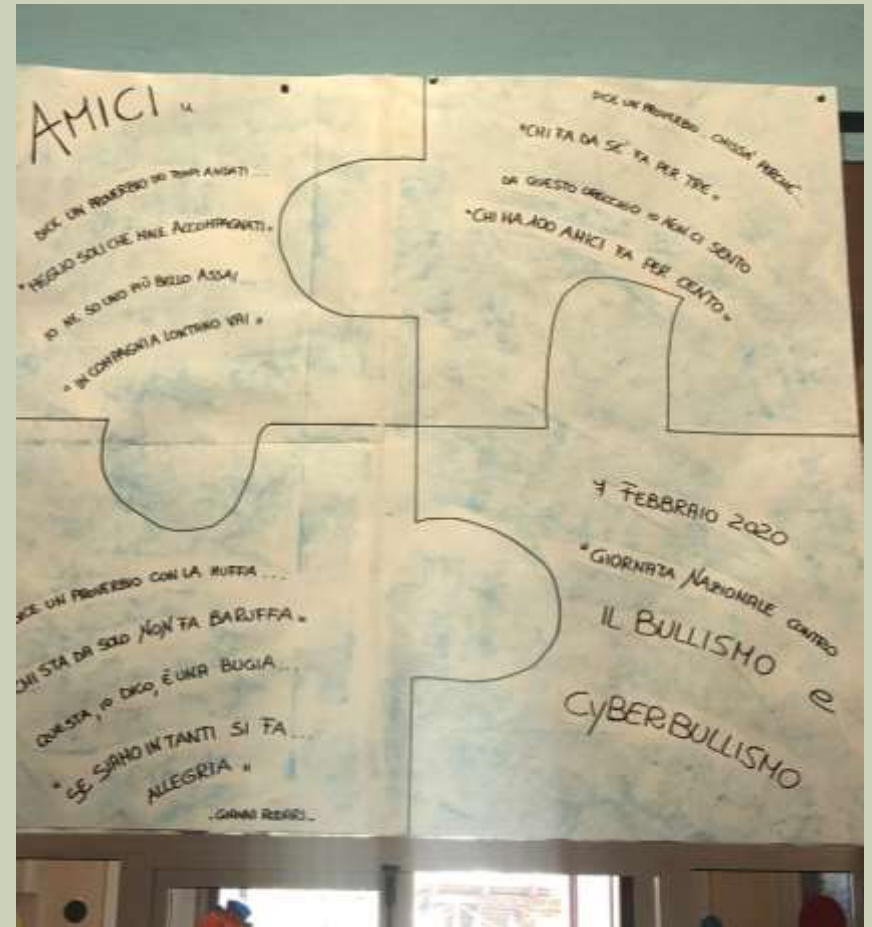 AMICI "
DICE UN PROVERBIO DEI TEMPI ANDATI...
"MEGLIO SOLI CHE MALE ACCOMPAGNATI"
IO NE SO UNO PIÙ BELLO ASSAI...
"IN COMPAGNIA LONTANO VAI"
DICE UN PROVERBIO CHISSÀ PERCHÉ
"CHI FA DA SÉ FA PER TRE"
DA QUESTO ORECCHIO IO NON CI SENTO
"CHI HA 100 AMICI FA PER CENTO"
DICE UN PROVERBIO CON LA MUFFA...
CHI STA DA SOLO NON FA BARUFFA"
QUESTA, IO DICO, È UNA BUGIA...
"SE SIAMO IN TANTI SI FA...
ALLEGRIA"
-GIANNI RODARI-
7 FEBBRAIO 2020
"GIORNATA NAZIONALE CONTRO
IL BULLISMO e
CYBERBULLISMO